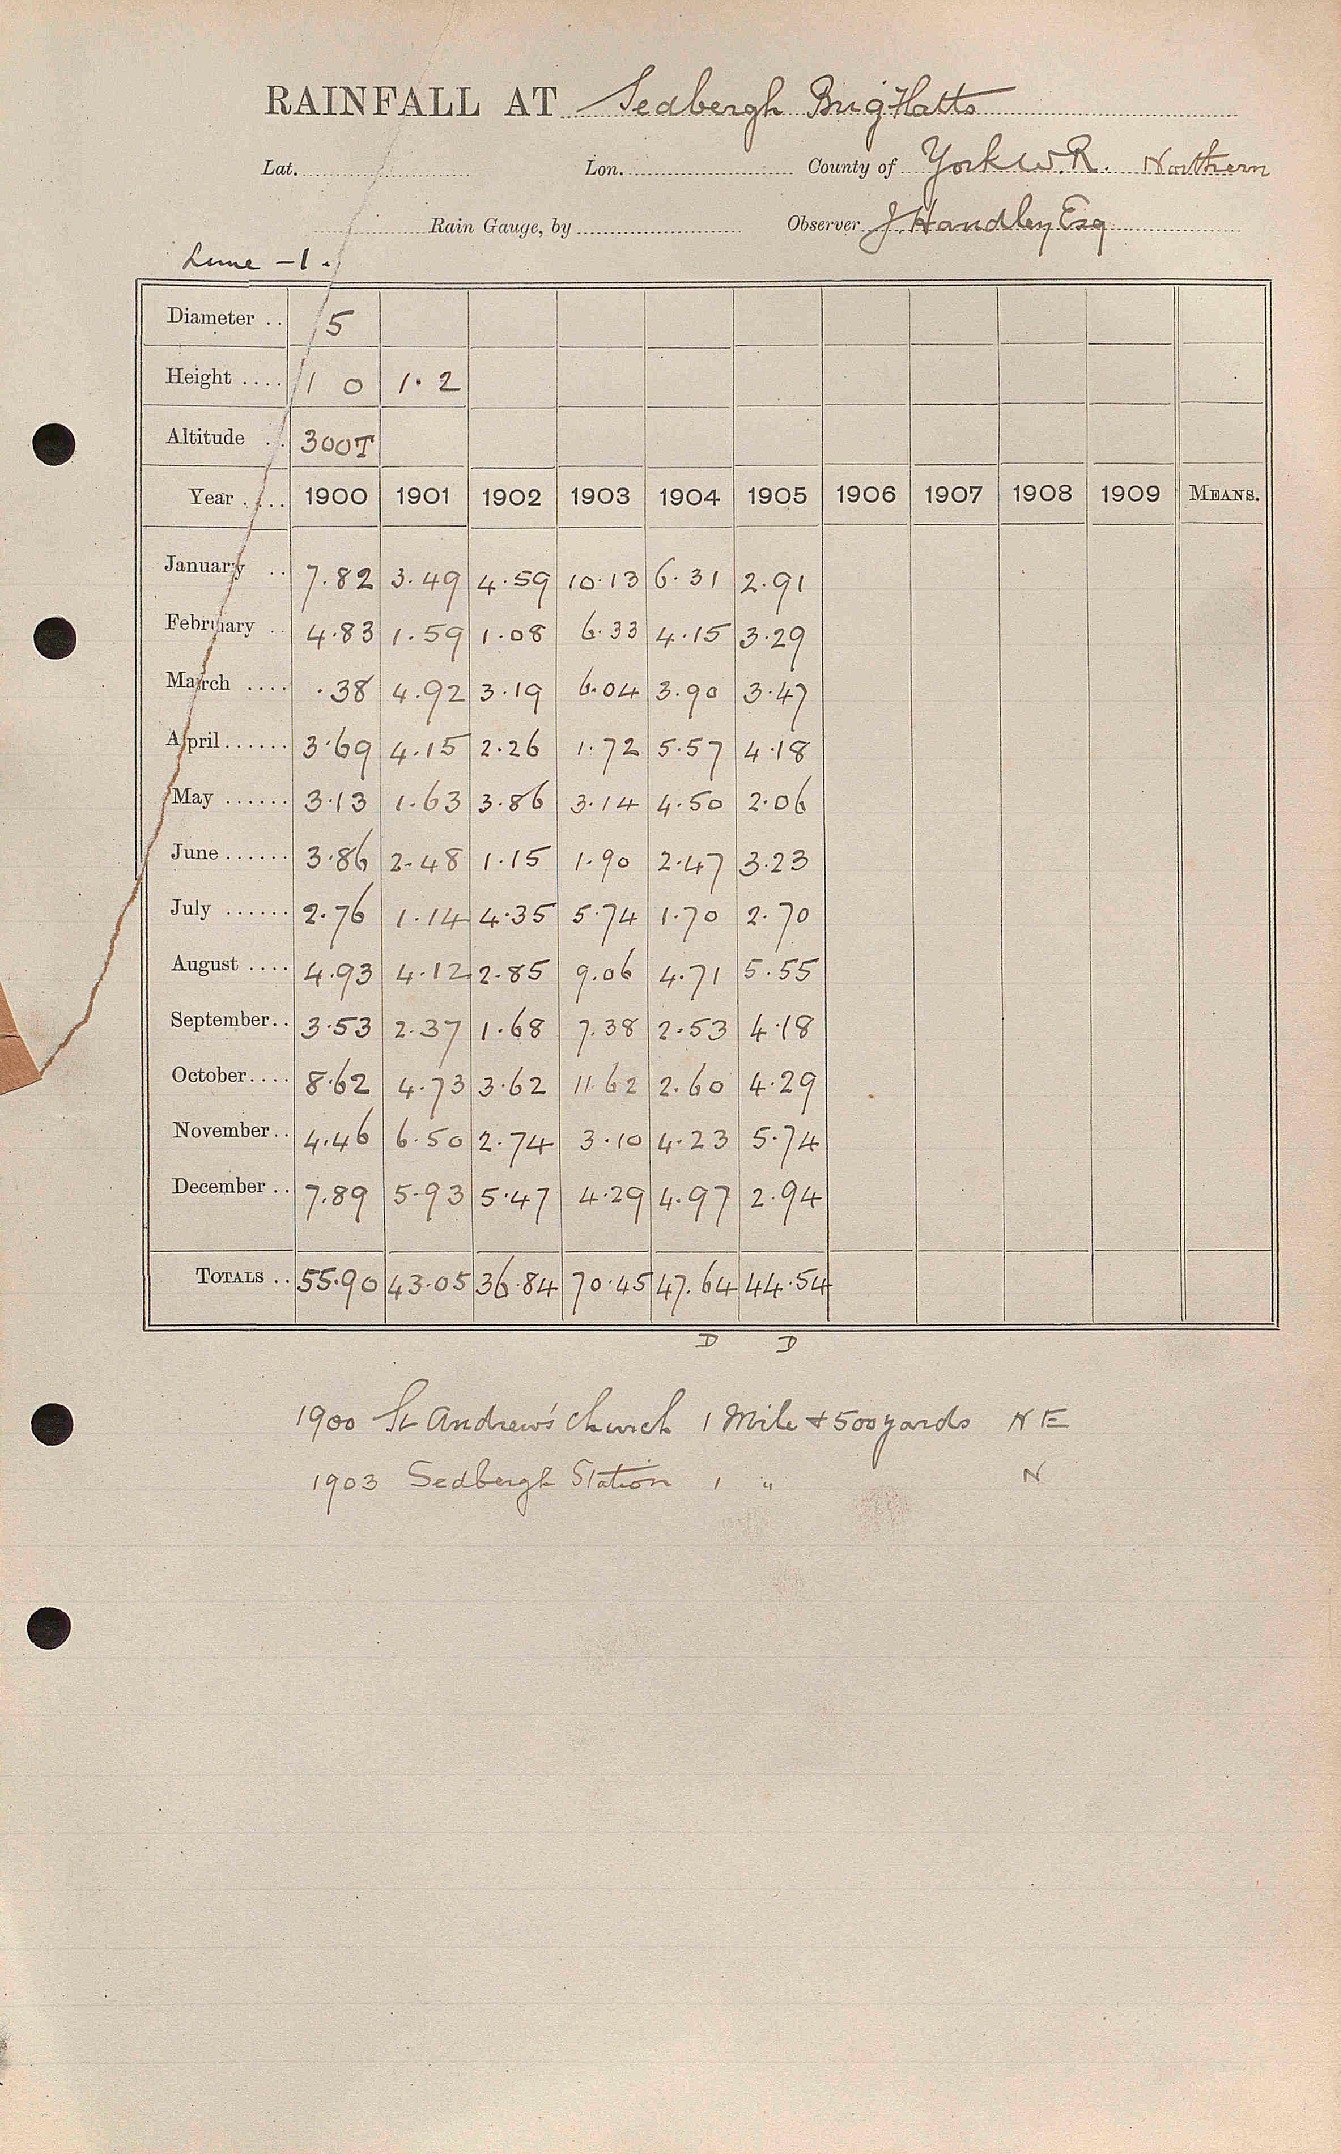 RAINFALL AT Sedbergh Brig Flatts
Lat. Lon. County of York W.R. Northern
Rain Gauge, by Observer J Handley Esq
Lune - 1.
Diameter .. 5
Height .... 1 0 1.2
Altitude .. 300T
Year .... 1900 1901 1902 1903 1904 1905 1906 1907 1908 1909 MEANS.
January .. 7.82 3.49 4.59 10.13 6.31 2.91
February .. 4.83 1.59 1.08 6.33 4.15 3.29
March .... .38 4.92 3.19 6.04 3.90 3.47
April...... 3.69 4.15 2.26 1.72 5.57 4.18
May ...... 3.13 1.63 3.86 3.14 4.50 2.06
June...... 3.86 2.48 1.15 1.90 2.47 3.23
July ...... 2.76 1.14 4.35 5.74 1.70 2.70
August .... 4.93 4.12 2.85 9.06 4.71 5.55
September.. 3.53 2.37 1.68 7.38 2.53 4.18
October.... 8.62 4.73 3.62 11.62 2.60 4.29
November.. 4.46 6.50 2.74 3.10 4.23 5.74
December .. 7.89 5.93 5.47 4.29 4.97 2.94
TOTALS .. 55.90 43.05 36.84 70.45 47.64 44.54
D D
1900 St Andrew's Church 1 Mile + 500 yards NE
1903 Sedbergh Station 1 " N